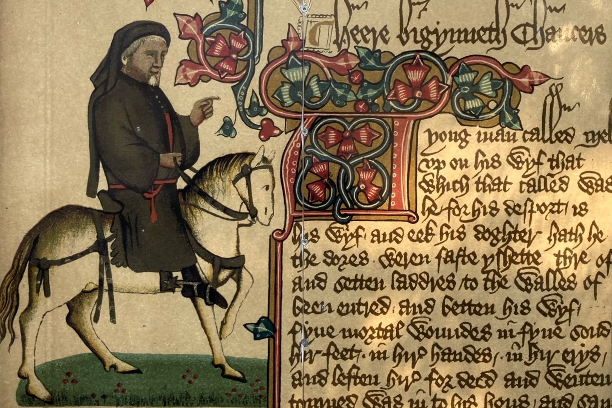 Heere bigynneth Chaucers
yong man called Mel
vp on his wyf that
which that called was
he for his desport is
his wyf and eek his doghter hath he
the dores weren faste yshette thre of
and setten laddres to the walles of
been entred and betten his wyf
fyue mortal woundes in fyue sond
hir feet in hir handes in hir erys
and leften hir for deed and wenten
tourned was in to his hous and saw